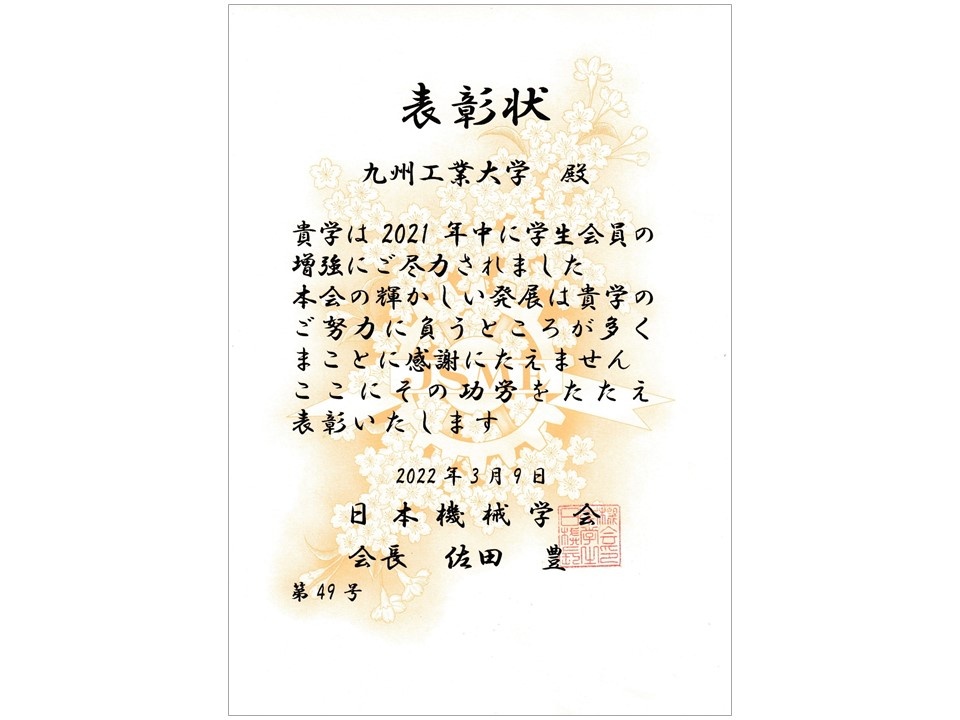 表彰状
九州工業大学 殿
貴学は 2021 年中に学生会員の
増強にご尽力されました
本会の輝かしい発展は貴学の
ご努力に負うところが多く
まことに感謝にたえません
ここにその功労をたたえ
表彰いたします
JSME
2022 年 3 月 9 日
日本機械学会
会長 佐田 豊
第 49 号